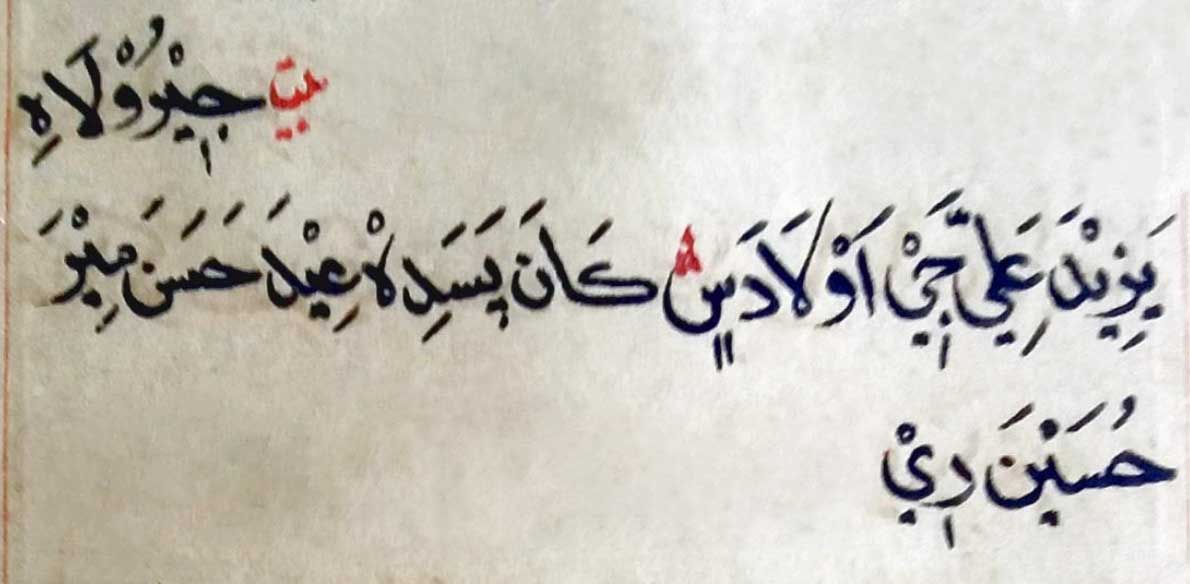 بيت جِيْرُوْلَاهِ
يَزِيْدَ عَلِيّ جَيْ اَوْلَادَ سٖ كَانَ پَسَدِ لَاْ عِيْدَ حَسَنَ مِيْرَ
حُسَيْنَ دٖيْ